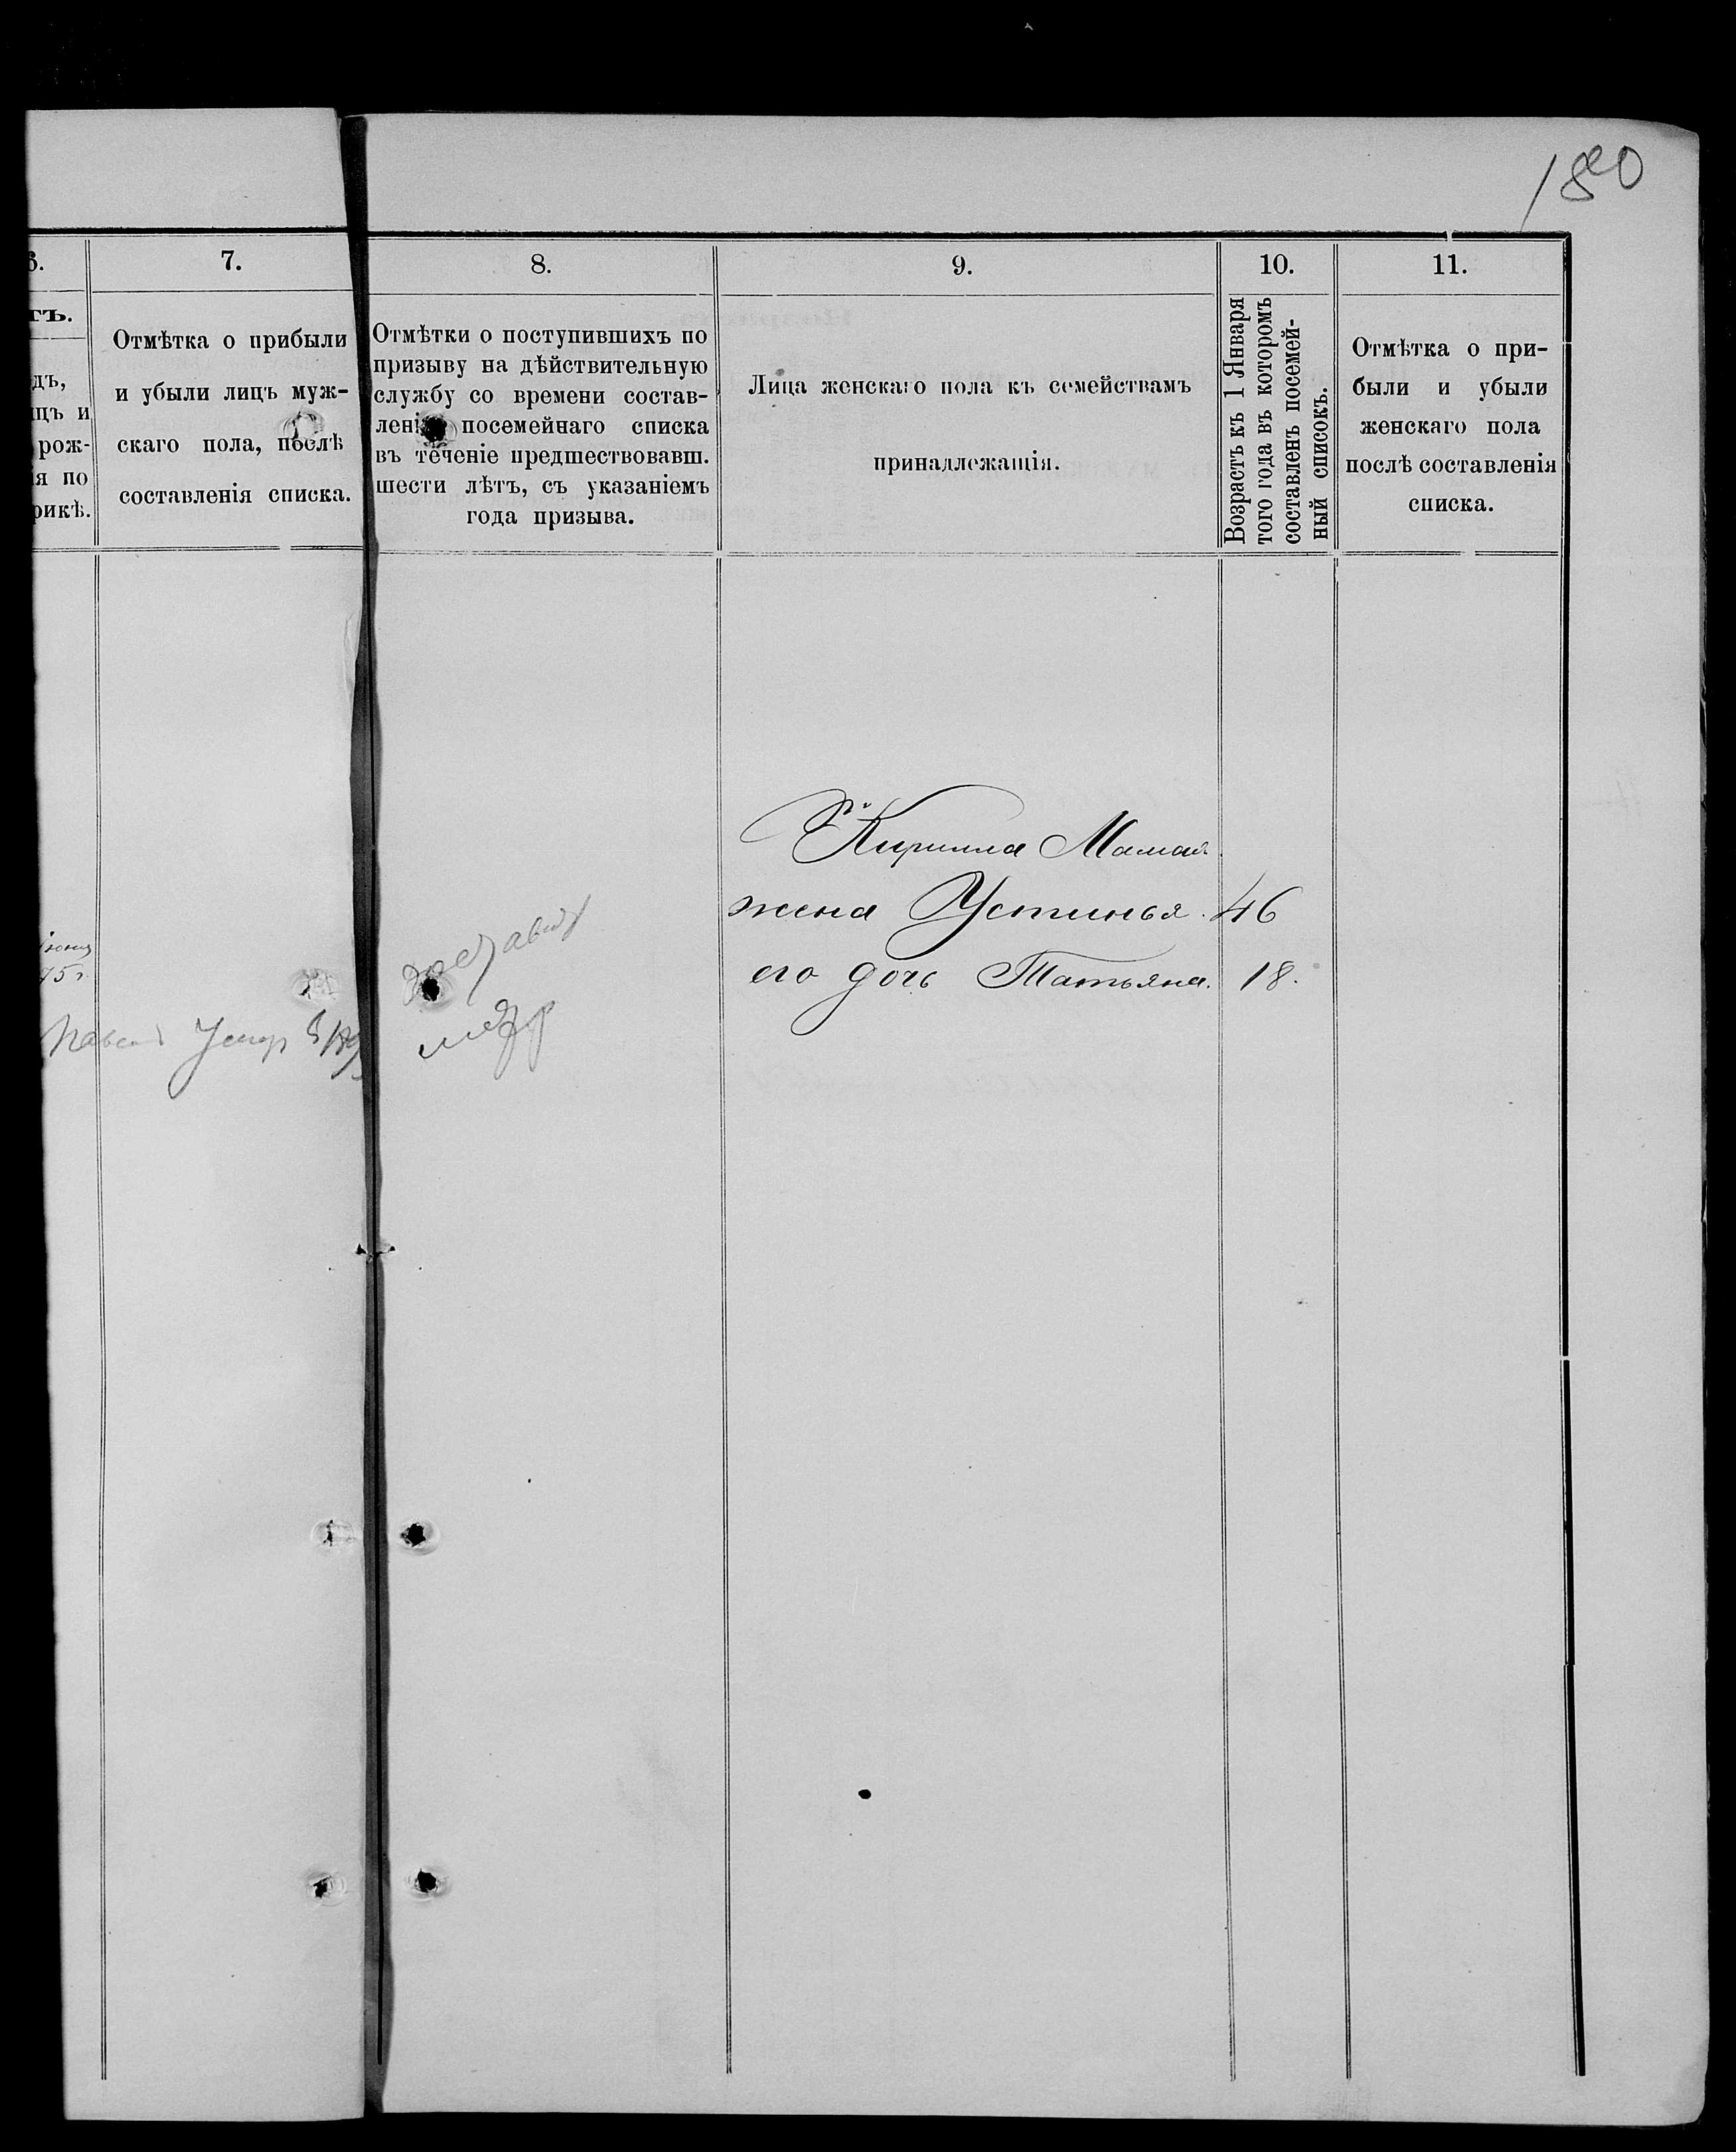 180
6.
7.
8.
9.
10.
11.
тъ.
дъ,
цъ и
рож-
ія по
рикѣ.
Отмѣтка о прибыли
и убыли лицъ муж-
скаго пола, послѣ
составленія списка.
Отмѣтки о поступившихъ по
призыву на дѣйствительную
службу со времени состав-
ленія посемейнаго списка
въ теченіе предшествовавш.
шести лѣтъ, съ указаніемъ
года призыва.
Лица женскаго пола къ семействамъ
принадлежащія.
Возрастъ къ 1 Января
того года въ которомъ
составленъ посемей-
ный списокъ.
Отмѣтка о при-
были и убыли
женскаго пола
послѣ составленія
списка.
Кирилла
жена Устинья. 46
его дочь Татьяна. 18.
75 г.